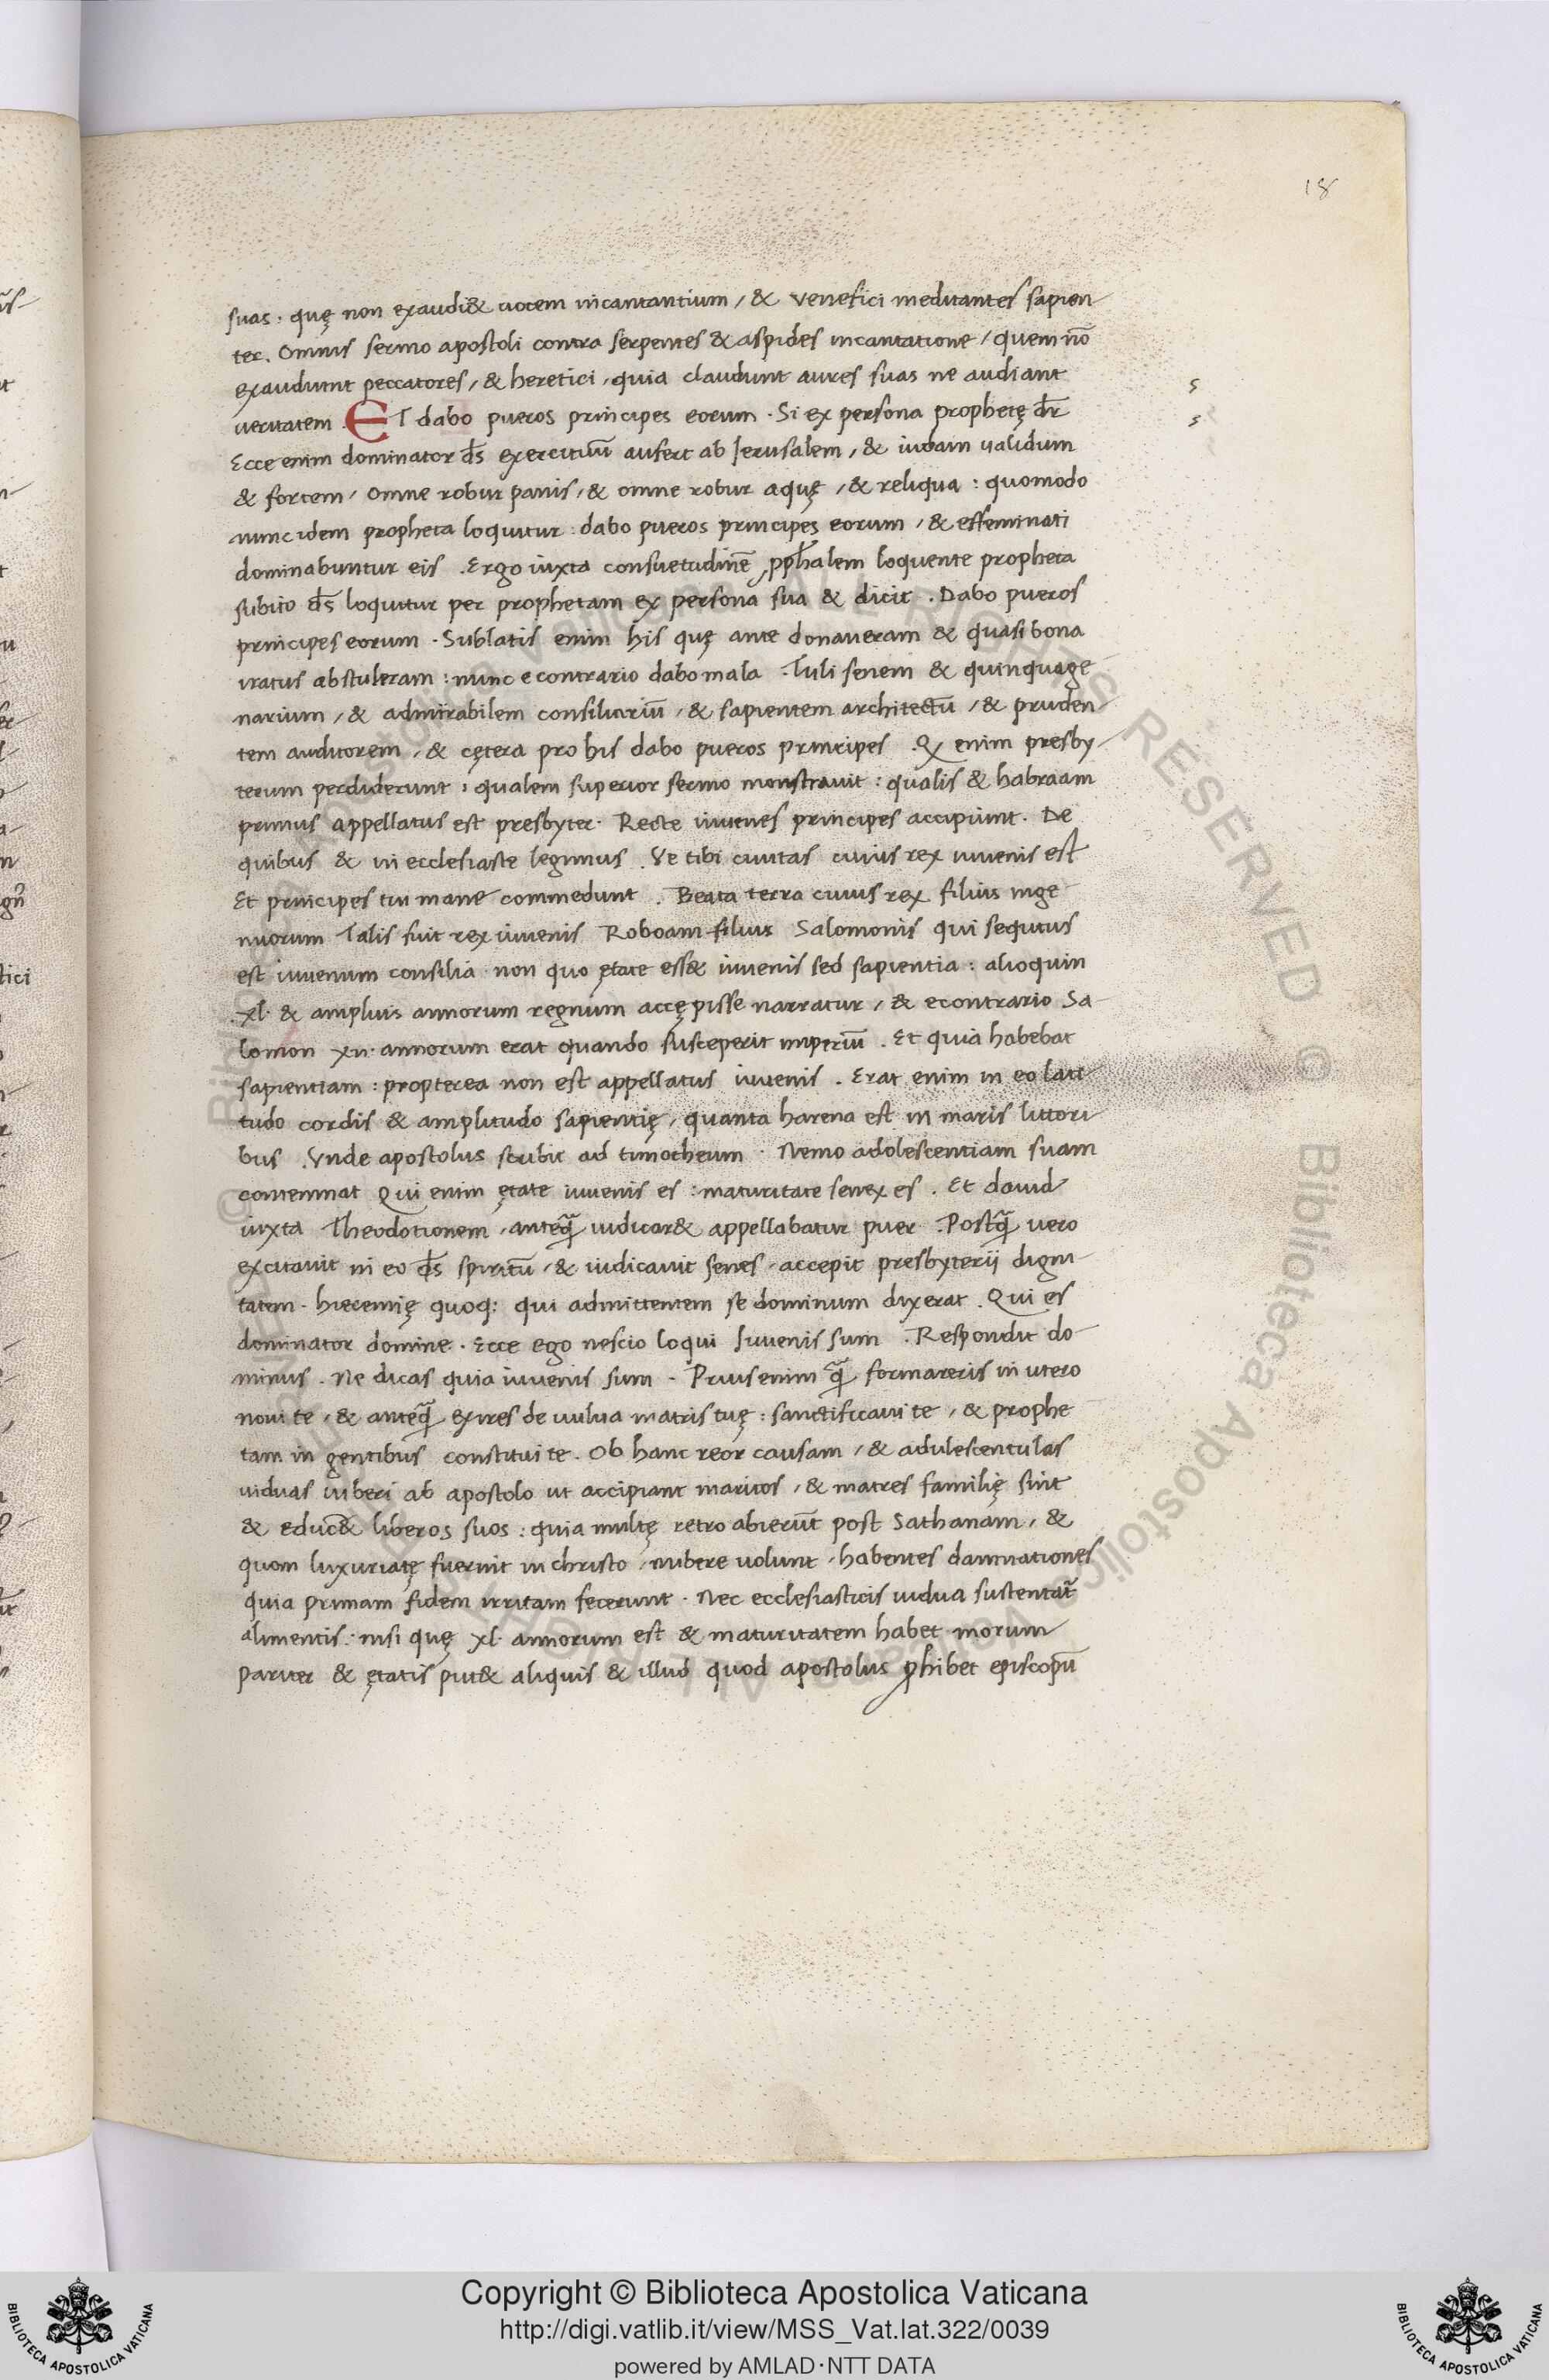 18
suas. quę non exaudi& uocem incantantium, & venefici meditantes sapien-
ter. Omnis sermo apostoli contra serpentes & aspides incantatione, quem nō
exaudiunt peccatores, & heretici, quia claudunt aures suas ne audiant
ueritatem. ET dabo pueros principes eorum. Si ex persona prophetę dr̄
Ecce enim dominator ds̄ exercituū aufert ab Ierusalem, & iudam validum
& fortem, omne robur panis, & omne robur aquę, & reliqua: quomodo
nunc idem propheta loquitur: dabo pueros principes eorum, & effeminati
dominabuntur eis. Ergo iuxta consuetudinē ꝓph̄alem loquente propheta
subito ds̄ loquitur per prophetam ex persona sua & dicit. Dabo pueros
principes eorum. Sublatis enim his quę ante donaueram & quasi bona
iratus abstuleram: nunc econtrario dabo mala. Tuli senem & quinquage-
narium, & admirabilem consiliariū, & sapientem architectū, & pruden-
tem auditorem, & cętera pro his dabo pueros principes. Q enim presby-
terum perdiderunt: qualem superior sermo monstrauit: qualis & habraam
primus appellatus est presbyter. Recte iuuenes principes accipiunt. De
quibus & in ecclesiaste legimus. Ve tibi ciuitas cuius rex iuuenis est
Et principes tui mane commedunt. Beata terra cuius rex filius inge-
nuorum Talis fuit rex iuuenis Roboam filius Salomonis qui sequtus
est iuuenum consilia non quo ętate ess& iuuenis sed sapientia: alioquin
.xl. & amplius annorum regnum accępisse narratur, & econtrario Sa-
lomon xii. annorum erat quando susceperit imperiū. Et quia habebat
sapientiam: propterea non est appellatus iuuenis. Erat enim in eo lati-
tudo cordis & amplitudo sapientię, quanta harena est in maris littori-
bus. Vnde apostolus scribit ad timotheum. Nemo adolescentiam suam
contemnat Qui enim ętate iuuenis es: maturitate senex es. Et dauid
iuxta Theodotionem, anteq̄ iudicar& appellabatur puer. Postq̄ uero
excitauit in eo ds̄ spiritū, & iudicauit senes, accepit presbyterij digni-
tatem. hieremię quoq: qui admittentem se dominum dixerat. Qui es
dominator domine. Ecce ego nescio loqui Iuuenis sum. Respondit do-
minus. Ne dicas quia iuuenis sum. Prius enim q̄ formareris in utero
noui te, & anteq̄ exires de uulua matris tuę: sanctificaui te, & prophe-
tam in gentibus constitui te. Ob hanc reor causam, & adulescentulas
uiduas iuberi ab apostolo ut accipiant maritos, & matres familię sint
& educ& liberos suos: quia multę retro abierūt post Sathanam, &
quom luxuriatę fuerint in christo, nubere uolunt, habentes damnationes
quia primam fidem irritam fecerunt. Nec ecclesiasticis uidua sustentat̄
alimentis. nisi quę xl. annorum est & maturitatem habet morum
pariter & ętatis put& aliquis & illud quod apostolus ꝓhibet episcopū
Copyright © Biblioteca Apostolica Vaticana
http://digi.vatlib.it/view/MSS_Vat.lat.322/0039
powered by AMLAD·NTT DATA
BIBLIOTECA APOSTOLICA VATICANA
BIBLIOTECA APOSTOLICA VATICANA